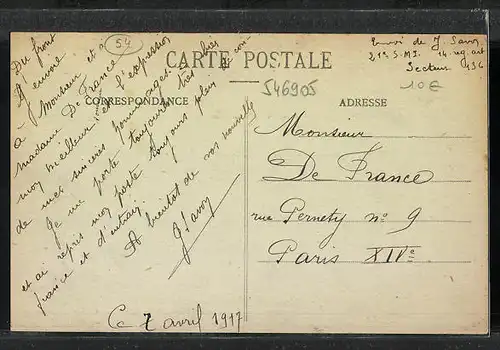 Du front
J'envoie
à Monsieur et
madame De France
mon meilleur et l'expression
de mes sincères hommages.
Je me porte toujours très bien
et ai repris mon poste toujours plein
de confiance et d'entrain.
A bientôt de vos nouvelles
J Savoy
Ce 7 avril 1917
54
CARTE POSTALE
CORRESPONDANCE
ADRESSE
546905
10€
Envoi de J. Savoy
21e S.M.I. 14 reg art
Secteur 136
Monsieur
De France
rue Pernety no 9
Paris XIVe